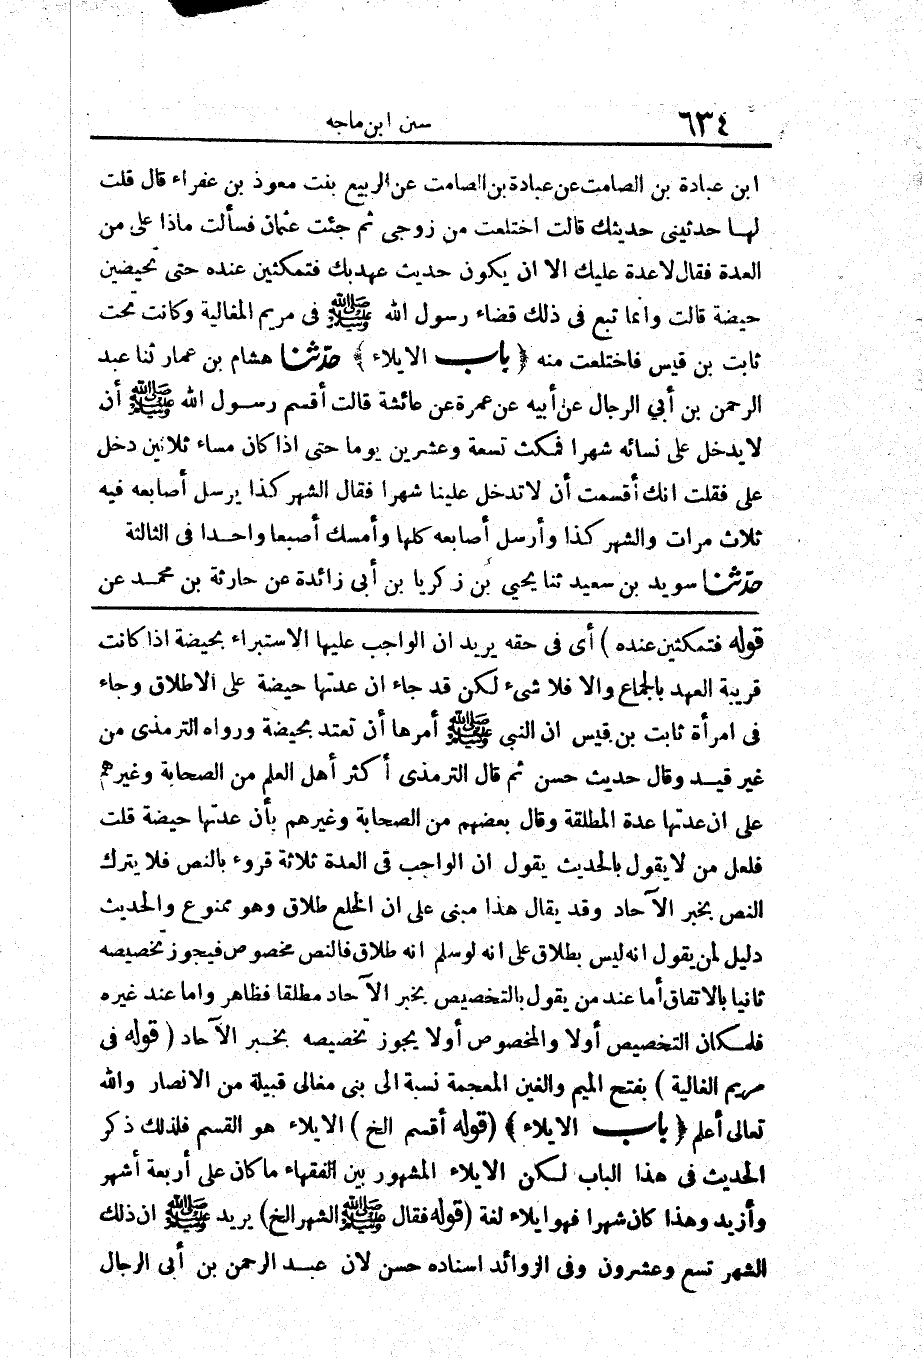 ٦٣٤
سنن ابن ماجه
ابن عبادة بن الصامت عن عبادة بن الصامت عن الربيع بنت معوذ بن عفراء قال قلت
لها حدثينى حديثك قالت اختلعت من زوجى ثم جئت عثمان فسألت ماذا على من
العدة فقال لاعدة عليك الا ان يكون حديث عهدبك فتمكثين عنده حتى تحيضين
حيضة قالت وانما تبع فى ذلك قضاء رسول الله ﷺ فى مريم المغالية وكانت تحت
ثابت بن قيس فاختلعت منه ﴿ باب الايلاء ﴾ حدّثنا هشام بن عمار ثنا عبد
الرحمن بن أبي الرجال عن أبيه عن عمرة عن عائشة قالت أقسم رسول الله ﷺ أن
لايدخل على نسائه شهرا فمكث تسعة وعشرين يوما حتى اذا كان مساء ثلاثين دخل
على فقلت انك أقسمت أن لاتدخل علينا شهرا فقال الشهر كذا يرسل أصابعه فيه
ثلاث مرات والشهر كذا وأرسل أصابعه كلها وأمسك أصبعا واحدا فى الثالثة
حدّثنا سويد بن سعيد ثنا يحيي بن زكريا بن أبى زائدة عن حارثة بن محمد عن
قوله فتمكثين عنده ) أى فى حقه يريد ان الواجب عليها الاستبراء بحيضة اذا كانت
قريبة العهد بالجماع والا فلا شىء لكن قد جاء ان عدتها حيضة على الاطلاق وجاء
فى امرأة ثابت بن قيس ان النبى ﷺ أمرها أن تعتد بحيضة ورواه الترمذى من
غير قيد وقال حديث حسن ثم قال الترمذى أكثر أهل العلم من الصحابة وغيرهم
على ان عدتها عدة المطلقة وقال بعضهم من الصحابة وغيرهم بأن عدتها حيضة قلت
فلعل من لا يقول بالحديث يقول ان الواجب فى العدة ثلاثة قروء بالنص فلا يترك
النص بخبر الآحاد وقد يقال هذا مبنى على ان الخلع طلاق وهو ممنوع والحديث
دليل لمن يقول انه ليس بطلاق على انه لوسلم انه طلاق فالنص مخصوص فيجوز تخصيصه
ثانيا بالاتفاق أما عند من يقول بالتخصيص بخبر الآحاد مطلقا فظاهر واما عند غيره
فلمكان التخصيص أولا والمخصوص أولا يجوز تخصيصه بخبر الآحاد ( قوله فى
مريم الغالية ) بفتح الميم والغين المعجمة نسبة الى بنى مغالى قبيلة من الانصار والله
تعالى أعلم ﴿ باب الايلاء ﴾ (قوله أقسم الخ ) الايلاء هو القسم فلذلك ذكر
الحديث فى هذا الباب لكن الايلاء المشهور بين الفقهاء ما كان على أربعة أشهر
وأزيد وهذا كان شهرا فهو ايلاء لغة (قوله فقال ﷺ الشهر الخ) يريد ﷺ ان ذلك
الشهر تسع وعشرون وفى الزوائد اسناده حسن لان عبد الرحمن بن أبى الرجال